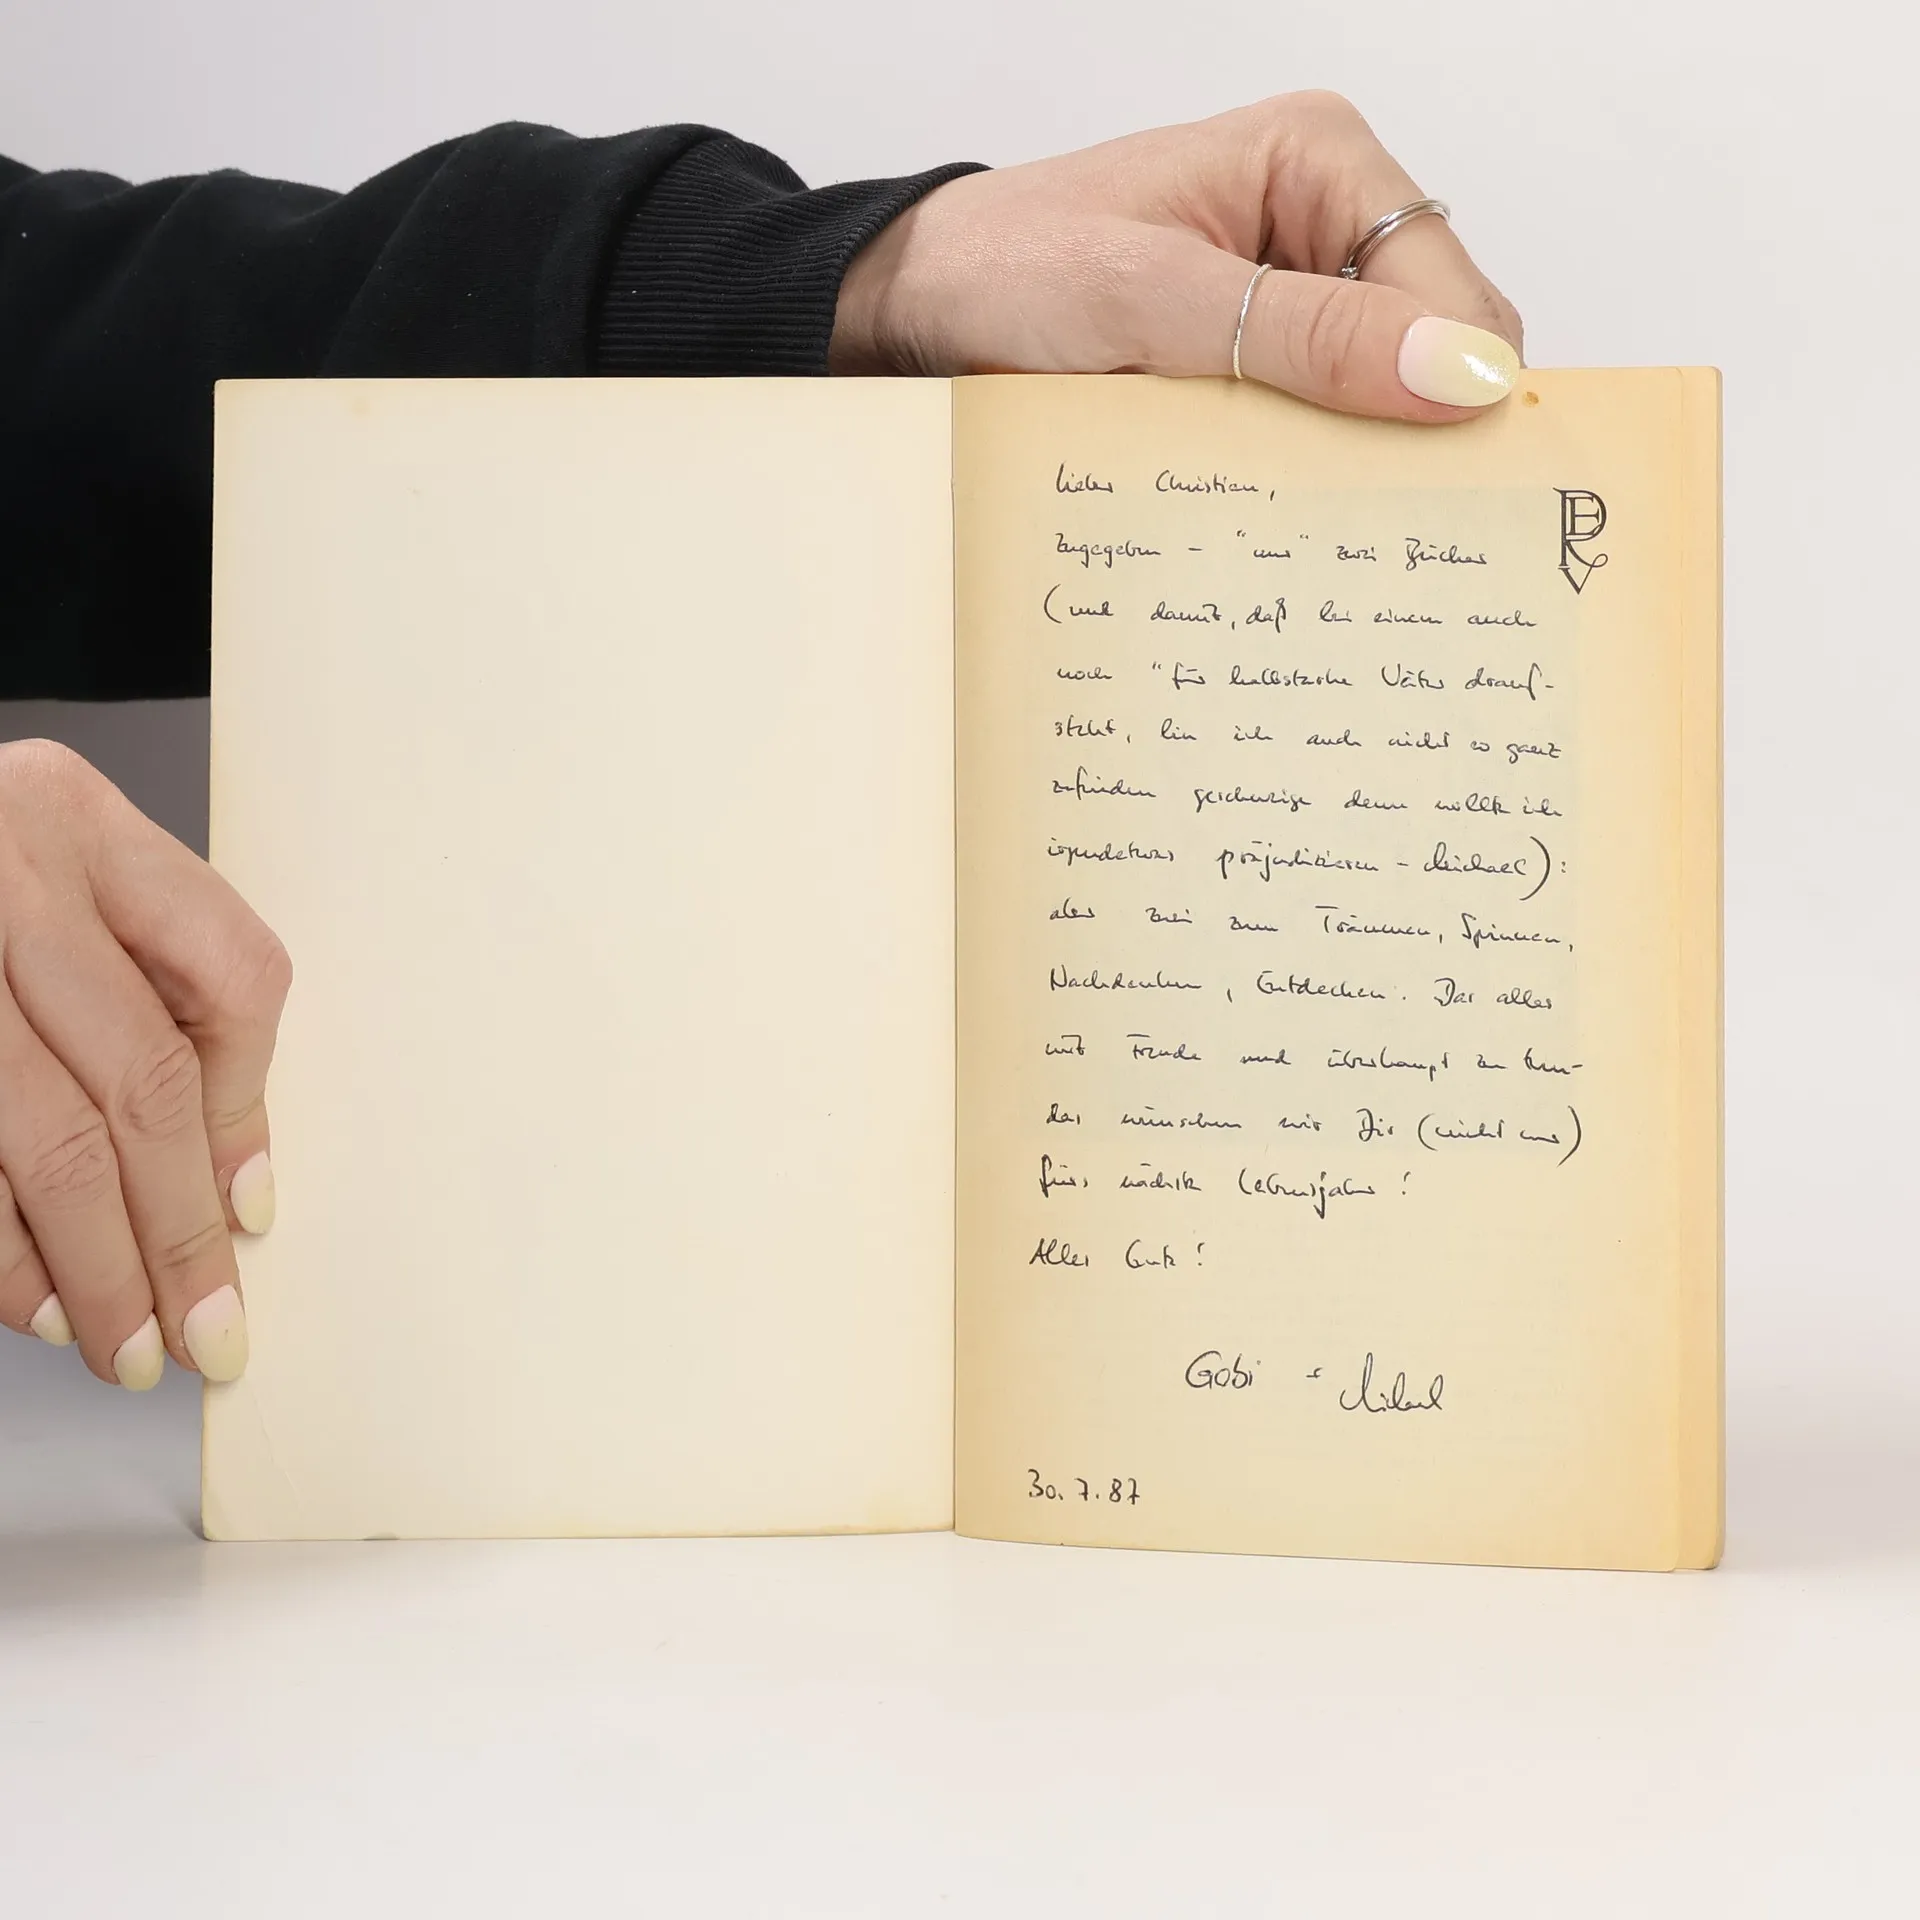 Lieber Christian,
zugegeben - "nur" zwei Bücher
(und damit, daß bei einem auch
noch "für halbstarke Väter drauf-
steht, bin ich auch nicht so ganz
zufrieden geschweige denn wollte ich
irgendetwas präjudizieren - Michael):
aber zwei zum Träumen, Spinnen,
Nachdenken, Entdecken. Das alles
mit Freude und überhaupt zu tun -
das wünschen wir Dir (nicht nur)
fürs nächste Lebensjahr!
Alles Gute!
Gobi + Michael
30.7.87